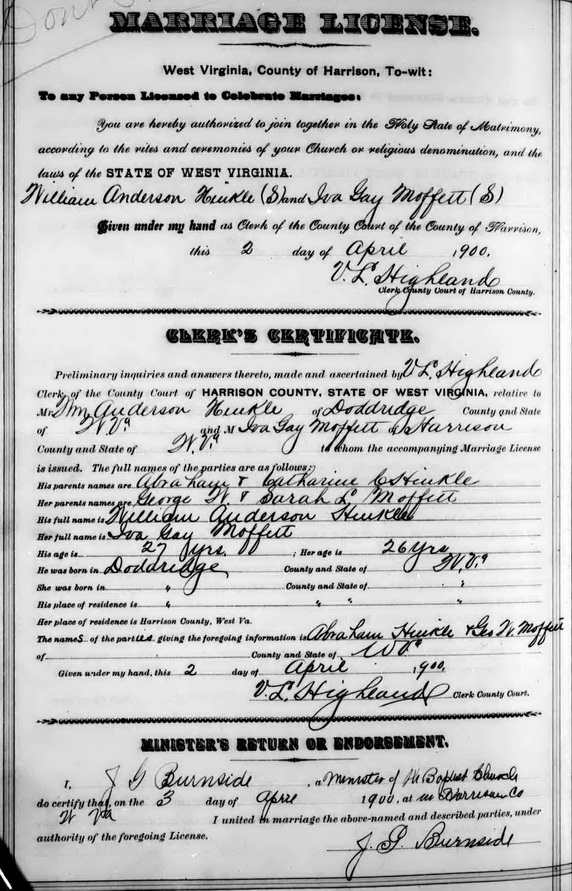 Don't
MARRIAGE LICENSE.
West Virginia, County of Harrison, To-wit:
To any Person Licensed to Celebrate Marriages:
You are hereby authorized to join together in the Holy State of Matrimony,
according to the rites and ceremonies of your Church or religious denomination, and the
laws of the STATE OF WEST VIRGINIA.
William Anderson Hinkle (S) and Iva Gay Moffett (S)
Given under my hand as Clerk of the County Court of the County of Harrison,
this 2 day of April 1900.
V. L. Highland
Clerk County Court of Harrison County.
CLERK'S CERTIFICATE.
Preliminary inquiries and answers thereto, made and ascertained by V L Highland
Clerk of the County Court of HARRISON COUNTY, STATE OF WEST VIRGINIA, relative to
Mr Wm Anderson Hinkle of Doddridge County and State
of W. Va and M Iva Gay Moffett of Harrison
County and State of W. Va to whom the accompanying Marriage License
is issued. The full names of the parties are as follows:
His parents names are Abraham & Catharine C Hinkle
Her parents names are George W & Sarah L Moffett
His full name is William Anderson Hinkle
Her full name is Iva Gay Moffett
His age is 27 yrs. ; Her age is 26 yrs
He was born in Doddridge County and State of W. Va
She was born in " County and State of "
His place of residence is " " " "
Her place of residence is Harrison County, West Va.
The names of the parties giving the foregoing information is Abraham Hinkle & Geo W. Moffett
of County and State of W Va
Given under my hand, this 2 day of April 1900.
V. L. Highland Clerk County Court.
MINISTER'S RETURN OR ENDORSEMENT.
I, J G Burnside, a Minister of the Baptist Church
do certify that, on the 3 day of April 1900, at in Harrison Co
W Va I united in marriage the above-named and described parties, under
authority of the foregoing License.
J. G. Burnside